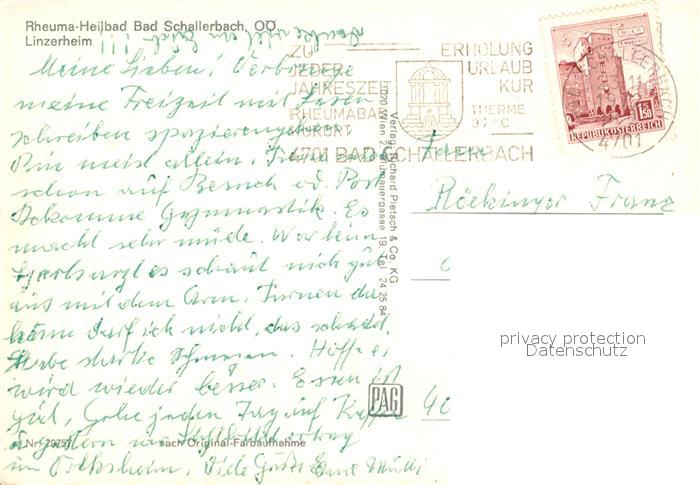 Rheuma-Heilbad Bad Schallerbach, OÖ
Linzerheim
ZU
JEDER
JAHRESZEIT
RHEUMABAD
KURORT
4701 BAD SCHALLERBACH
ERHOLUNG
URLAUB
KUR
THERME
37°C
4701
1S50
REPUBLIK ÖSTERREICH
Meine Lieben! Verbringe
meine Freizeit mit Lesen
schreiben spazieren
Bin meist allein.
schon auf Besuch od. Post
Bekomme Gymnastik. Es
macht sehr müde. War beim
es schaut nicht gut
aus mit dem Arm. Turnen da
darf ich nicht, das schadet,
Habe starke Schmerzen. Hoffe es
wird wieder besser. Essen ist
viel, Gehe jeden Tag auf Kaffee
gestern
im Volksheim. Viele Grüße Eure Mutti
Röckinger Franz
40
Verlag Richard Pietsch & Co. KG
1020 Wien 2, 19, Tel. 24 25 84
PAG
Nr. 79757 nach Original-Farbaufnahme
privacy protection
Datenschutz